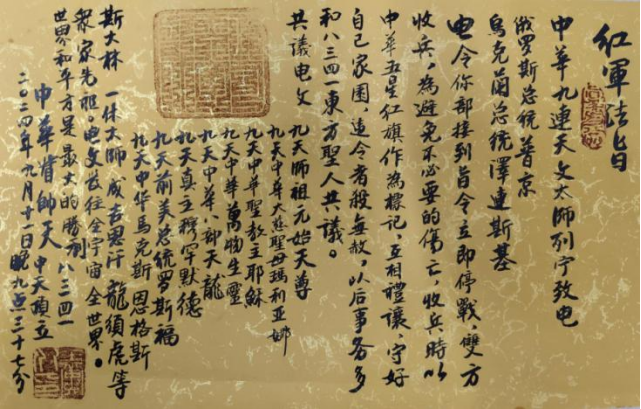 红軍法旨
中華九連天文太師列宁致电
俄罗斯总统普京
烏克蘭总统澤連斯基
电令你部接到旨令立即停戰，雙方
收兵，為避免不必要的傷亡，收兵時以
中華五星红旗作為標记，互相禮讓，守好
自己家園，違令者殺無赦，以后事务多
和八三四一東方聖人共議。
共議电文
九天师祖元始天尊
九天中华大慈聖母瑪利亚娣
九天中華聖教主耶穌
九天中華萬物生靈
九天中華八部天龍
九天真主穆罕默德
九天前美总统罗斯福
九天中华马克斯 恩格斯
斯大林 一休大师 成吉思汗 龍须虎等
衆家先祖。电文发往全宇宙全世界。
世界和平方是最大的勝利 八三四一
中華 帥天 中天頭立
二〇二四年九月十一日晚九点三十七分